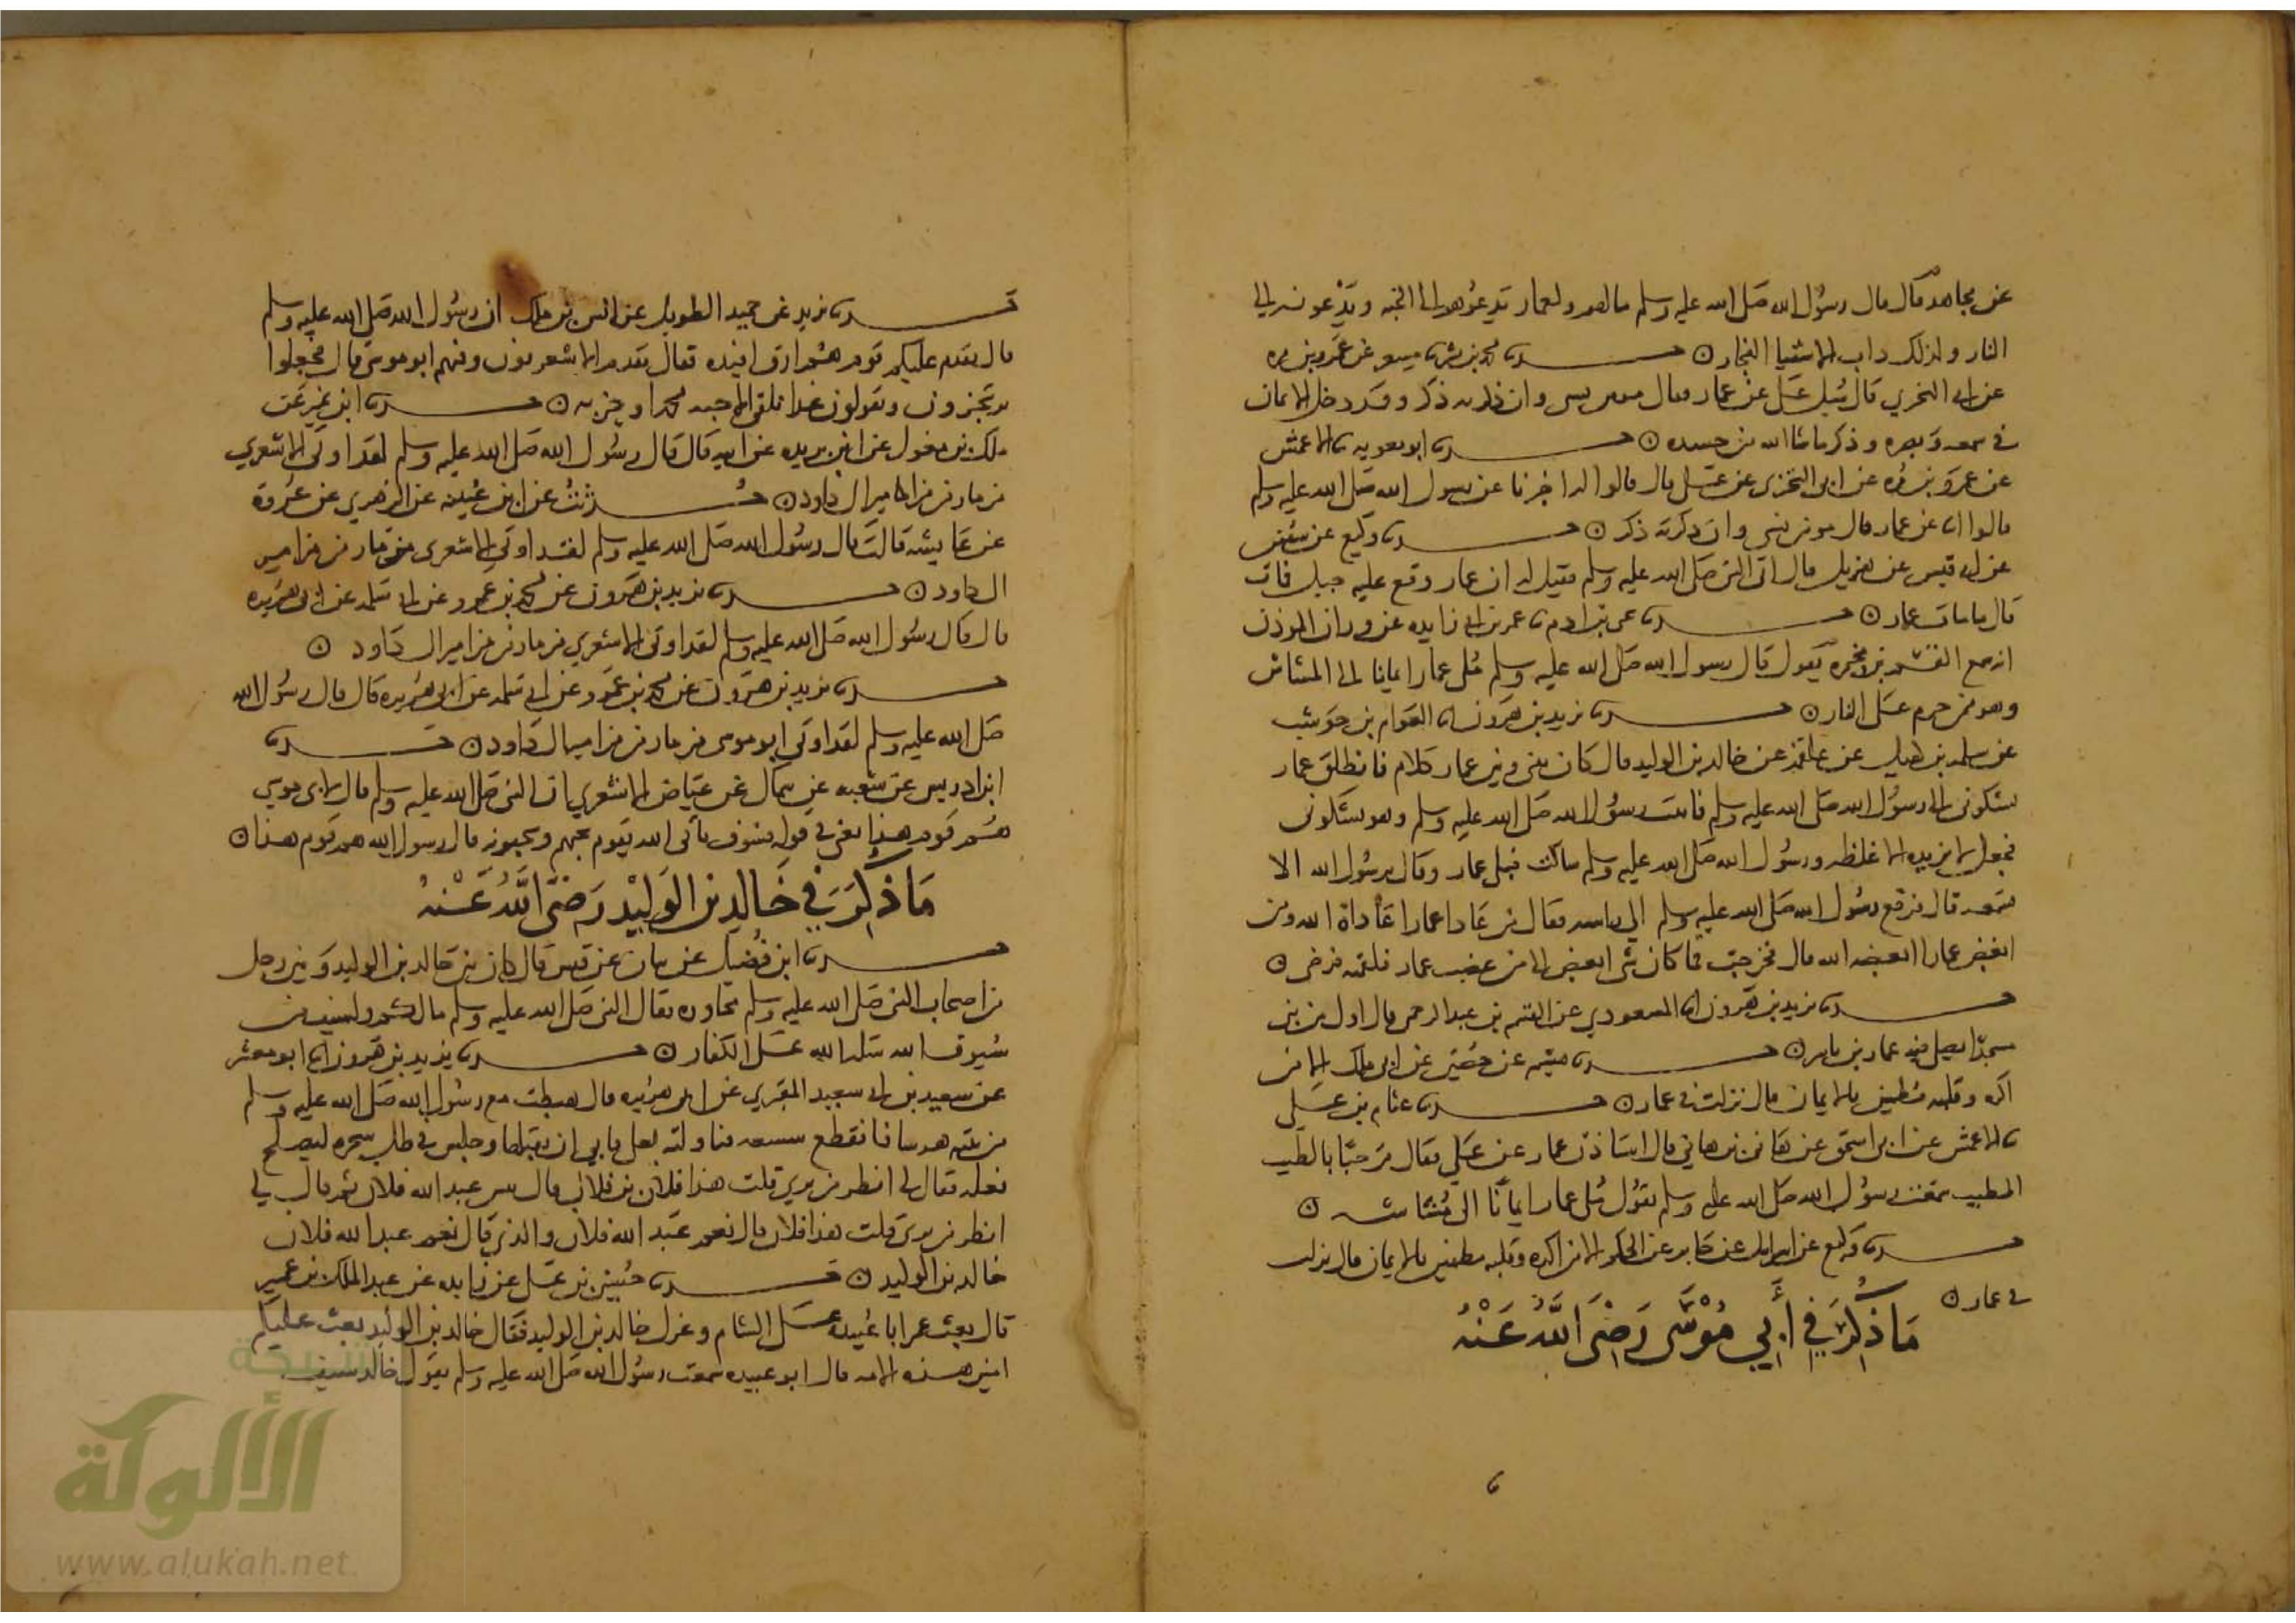 عن مجاهد قال قال رسول الله صلى الله عليه وسلم مالهم ولعمار يدعوهم الى الجنة ويدعونه الى
النار وذلك داب الاشقيا الفجار حدثنا محمد بن بشر نا مسعر عن عمرو بن مره
عن ابي البختري قال سئل علي عن عمار فقال مومن نسي وان ذكرته ذكر وقد دخل الايمان
في سمعه وبصره وذكر ما شا الله من جسده حدثنا ابو معويه نا الاعمش
عن عمرو بن مره عن ابي البختري عن علي قال قالوا له اخبرنا عن رسول الله صلى الله عليه وسلم
قالوا اخبرنا عن عمار قال مومن نسي وان ذكرته ذكر حدثنا وكيع عن سفين
عن ابي قيس عن هزيل قال اتي النبي صلى الله عليه وسلم فقيل له ان عمار وقع عليه جبل فمات
قال ما مات عمار حدثنا يحيى بن ادم نا عمر بن ابي زايده عن وردان الموذن
انه سمع القسم بن مخيمره يقول قال رسول الله صلى الله عليه وسلم ملي عمار ايمانا الى المشاش
وهو ممن حرم على النار حدثنا يزيد بن هرون انا العوام بن حوشب
عن سلمه بن كهيل عن علقمه عن خالد بن الوليد قال كان بيني وبين عمار كلام فانطلق عمار
يشكوني الى رسول الله صلى الله عليه وسلم فاتيت رسول الله صلى الله عليه وسلم وهو يشكوني
فجعل لا يزيده الا غلظه ورسول الله صلى الله عليه وسلم ساكت فبكى عمار وقال يرسول الله الا
تسمعه قال فرفع رسول الله صلى الله عليه وسلم الي راسه فقال من عادا عمارا عاداه الله ومن
ابغض عمارا ابغضه الله قال فخرجت فما كان شي ابغض الي من غضب عمار فلقيته فرضي
حدثنا يزيد بن هرون انا المسعودي عن القسم بن عبد الرحمن قال اول من بنى
مسجدا يصلى فيه عمار بن ياسر حدثنا هشيم عن حصين عن ابي ملك الا من
اكره وقلبه مطمين بالايمان قال نزلت في عمار حدثنا عثام بن علي
نا الاعمش عن ابي اسحق عن هاني بن هاني قال استاذن عمار عن علي فقال مرحبا بالطيب
المطيب سمعت رسول الله صلى الله عليه وسلم يقول ملي عمار ايمانا الى مشاشه
حدثنا وكيع عن اسرايل عن جابر عن الحكم الا من اكره وقلبه مطمين بالايمان قال نزلت
في عمار
مَا ذُكِرَ فِي أَبِي مُوسَى رَضِيَ اللَّهُ عَنْهُ
حدثنا يزيد عن حميد الطويل عن انس بن ملك ان رسول الله صلى الله عليه وسلم
قال يقدم عليكم قوم هم ارق افيده فقال يقدم الاشعريون وفيهم ابو موسى قال فجعلوا
يرتجزون ويقولون غدا نلقى الاحبه محمدا وحزبه حدثنا ابن نمير عن
ملك بن مغول عن ابن بريده عن ابيه قال قال رسول الله صلى الله عليه وسلم لقد اوتي الاشعري
مزمار من مزامير ال داود حدثت عن ابن عيينه عن الزهري عن عروة
عن عايشه قالت قال رسول الله صلى الله عليه وسلم لقد اوتي الاشعري مزمار من مزامير
ال داود حدثنا يزيد بن هرون عن محمد بن عمرو عن ابي سلمه عن ابي هريره
قال قال رسول الله صلى الله عليه وسلم لقد اوتي الاشعري مزمار من مزامير ال داود
حدثنا يزيد بن هرون عن محمد بن عمرو عن ابي سلمه عن ابي هريره قال قال رسول الله
صلى الله عليه وسلم لقد اوتي ابو موسى مزمار من مزامير ال داود حدثنا
ابن ادريس عن شعبه عن سماك عن عياض الاشعري ان النبي صلى الله عليه وسلم قال لابي موسى
هم قوم هذا يعني في قوله فسوف ياتي الله بقوم يحبهم ويحبونه قال رسول الله هم قوم هذا
مَا ذُكِرَ فِي خَالِد بن الوَلِيْد رَضِيَ اللَّهُ عَنْهُ
حدثنا ابن فضيل عن بيان عن قيس قال كان بين خالد بن الوليد وبين رجل
من اصحاب النبي صلى الله عليه وسلم محاوره فقال النبي صلى الله عليه وسلم مالكم ولسيف من
سيوف الله سله الله على الكفار حدثنا يزيد بن هرون انا ابو معشر
عن سعيد بن ابي سعيد المقبري عن ابي هريره قال هبطت مع رسول الله صلى الله عليه وسلم
من ثنيه هرشا فانقطع شسعه فناولته نعلي فابي ان يقبلها وجلس في ظل شجره ليصلح
نعله فقال لي انظر من ترى قلت هذا فلان بن فلان قال بيس عبد الله فلان ثم قال لي
انظر من ترى قلت هذا فلان قال نعم عبد الله فلان والذي قال نعم عبد الله فلان
خالد بن الوليد حدثنا حسين بن علي عن زايده عن عبد الملك بن عمير
قال بعث عمر ابا عبيده على الشام وعزل خالد بن الوليد فقال خالد بن الوليد بعث عليكم
امين هذه الامه قال ابو عبيده سمعت رسول الله صلى الله عليه وسلم يقول خالد سيف
شبكة
الألوكة
www.alukah.net